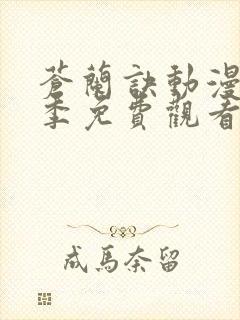 蒼蘭訣動漫
季免費觀看
成馬奈留